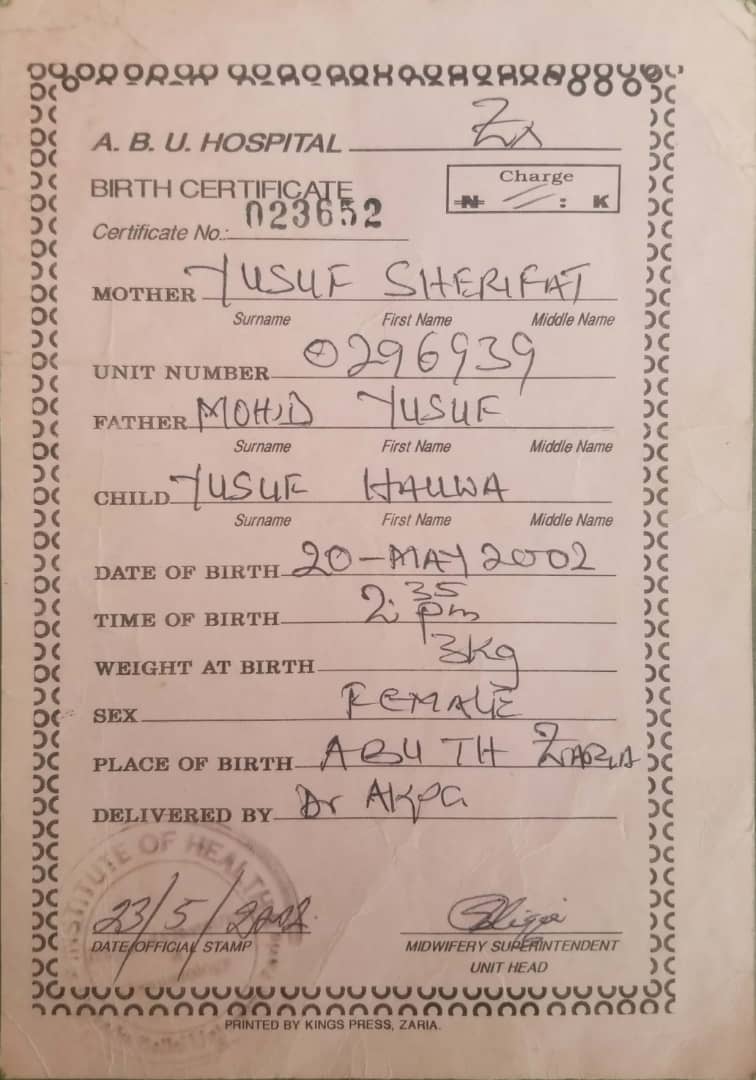 A. B. U. HOSPITAL Zx
BIRTH CERTIFICATE
Charge
N : K
Certificate No.: 023652
MOTHER YUSUF SHERIFAT
Surname First Name Middle Name
UNIT NUMBER 0296939
FATHER MOHD YUSUF
Surname First Name Middle Name
CHILD YUSUF HAUWA
Surname First Name Middle Name
DATE OF BIRTH 20-MAY 2002
TIME OF BIRTH 2:35 pm
WEIGHT AT BIRTH 3kg
SEX FEMALE
PLACE OF BIRTH ABU TH ZARIA
DELIVERED BY Dr AKPA
INSTITUTE OF HEALTH
23/5/2002
DATE/OFFICIAL STAMP
MIDWIFERY SUPERINTENDENT
UNIT HEAD
PRINTED BY KINGS PRESS, ZARIA.